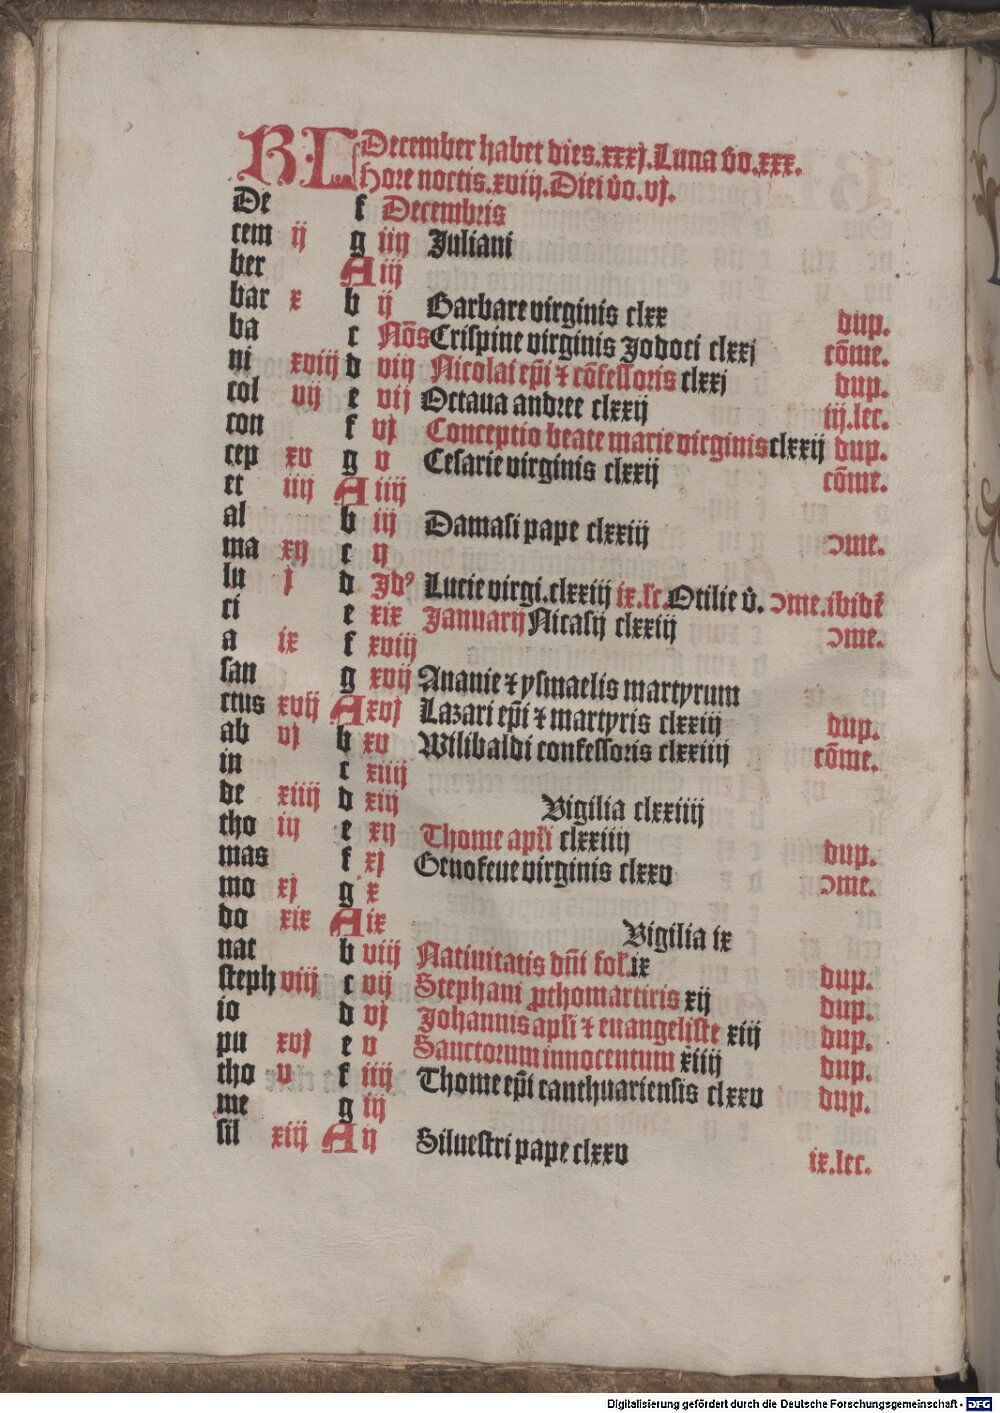 KL December habet dies.xxxj.Luna v̄o.xxx.
Hore noctis.xviij.Diei v̄o.vj.
De f Decembris
cem ij g iiij Juliani
ber A iij
bar x b ij Barbare virginis clxx dup.
ba c Nōs Crispine virginis Jodoci clxxj cōme.
ni xviij d viij Nicolai ep̄i ⁊ cōfessoris clxxj dup.
col vij e vij Octaua andree clxxij iij.lec.
con f vj Conceptio beate marie virginis clxxij dup.
cep xv g v Cesarie virginis clxxij cōme.
et iiij A iiij
al b iij Damasi pape clxxiij ꝯme.
ma xij c ij
lu j d Jdꝰ Lucie virgi.clxxiij ix.lc̄.Otilie v̄. ꝯme.ibidē
ci e xix Januarij Nicasij clxxiij ꝯme.
a ix f xviij
san g xvij Ananie ⁊ ysmaelis martyrum
ctus xvij A xvj Lazari ep̄i ⁊ martyris clxxiij dup.
ab vj b xv Wilibaldi confessoris clxxiiij cōme.
in c xiiij
de xiiij d xiij Vigilia clxxiiij
tho iij e xij Thome apl̄i clxxiiij dup.
mas f xj Genofeue virginis clxxv ꝯme.
mo xj g x
do xix A ix Vigilia ix
nat b viij Natiuitatis dn̄i fol.ix dup.
steph viij c vij Stephani ꝓthomartiris xij dup.
io d vj Johannis apl̄i ⁊ euangeliste xiij dup.
pu xvj e v Sanctorum innocentum xiiij dup.
tho v f iiij Thome ep̄i canthuariensis clxxv dup.
me g iij
sil xiij A ij Siluestri pape clxxv ix.lec.
Digitalisierung gefördert durch die Deutsche Forschungsgemeinschaft - DFG